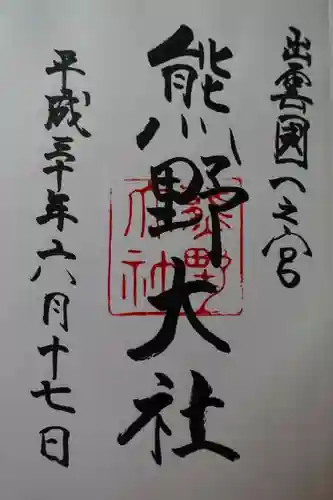 出雲國一之宮
熊野大社
平成三十年六月十七日
熊野大社